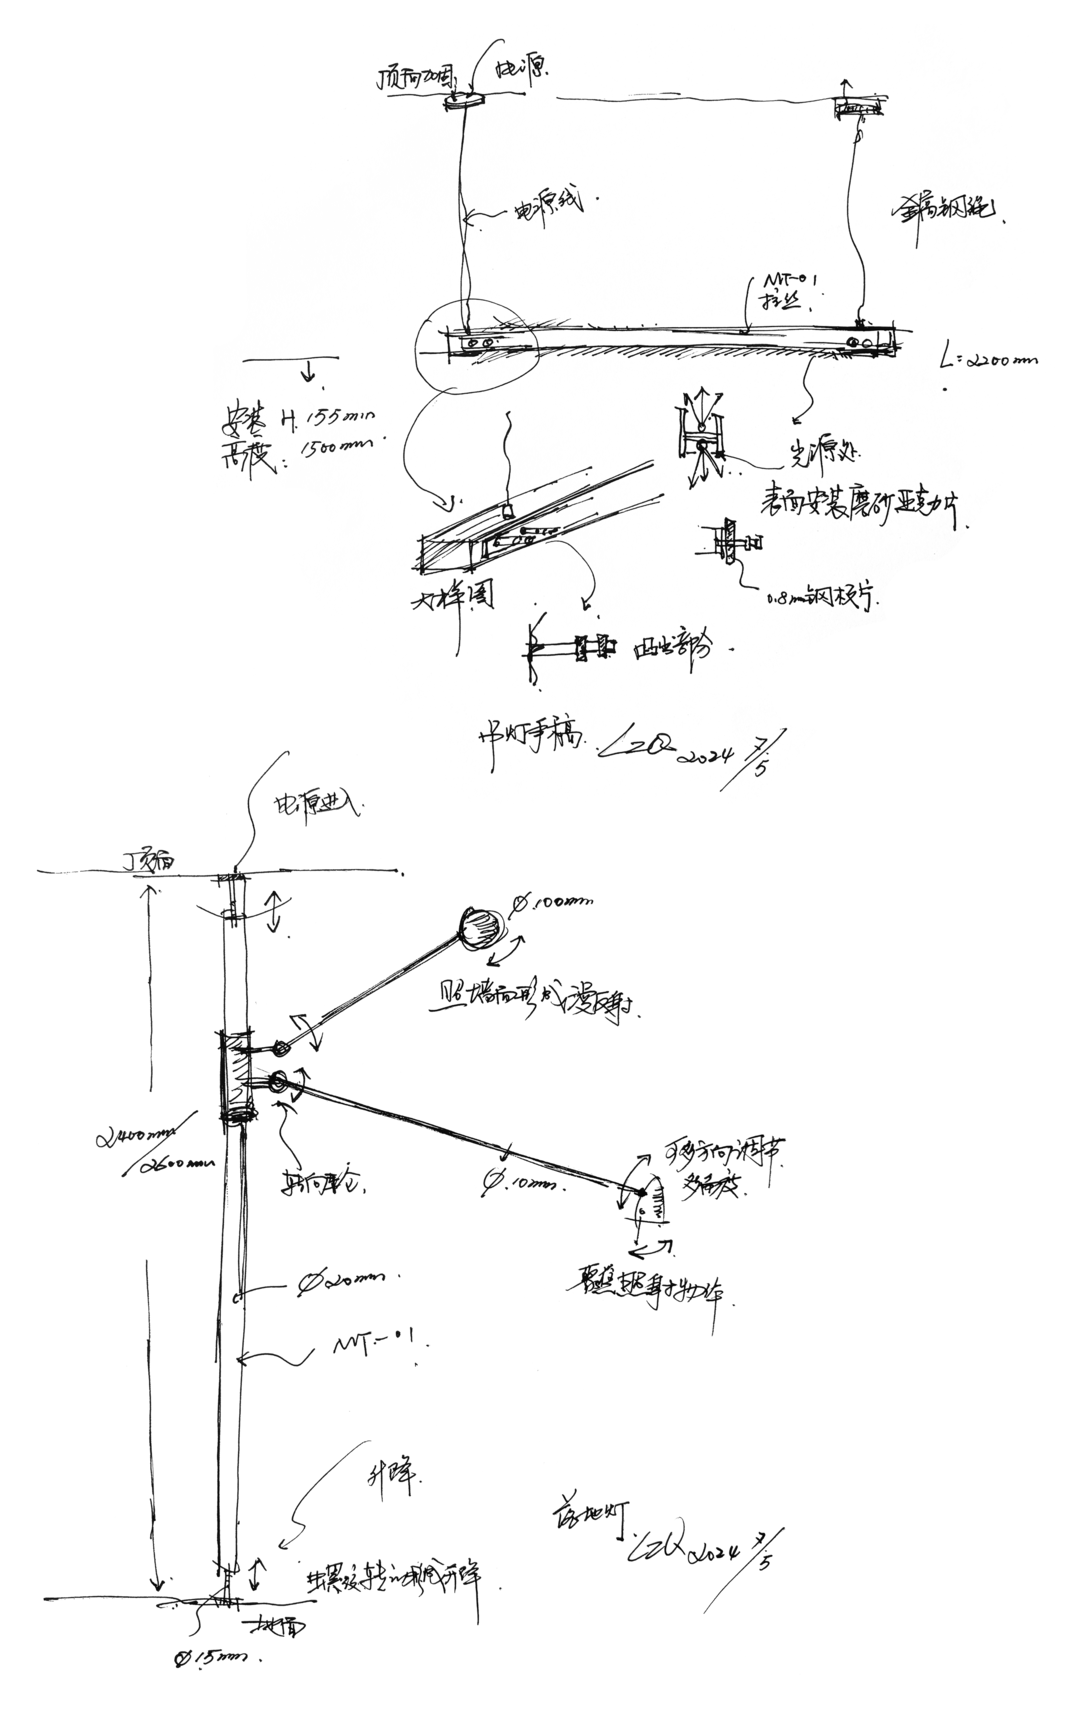 顶面加固
电源
电源线.
金属钢绳.
MT-01
拉丝.
L=2200mm
安装 H.155min
高度: 1500mm.
光源处.
表面安装磨砂亚克力片.
0.8mm钢板片.
大样图
凸出部分.
吊灯手稿. LZQ 2024 7/5
电源进入.
顶面
Ø.100mm
照墙面形成漫反射.
2400mm/2600mm
转向
Ø.10mm.
可多方向调节.
多角度.
聚焦照射
Ø20mm.
MT-01.
升降.
落地灯. LZQ 2024 7/5
地面
Ø15mm.